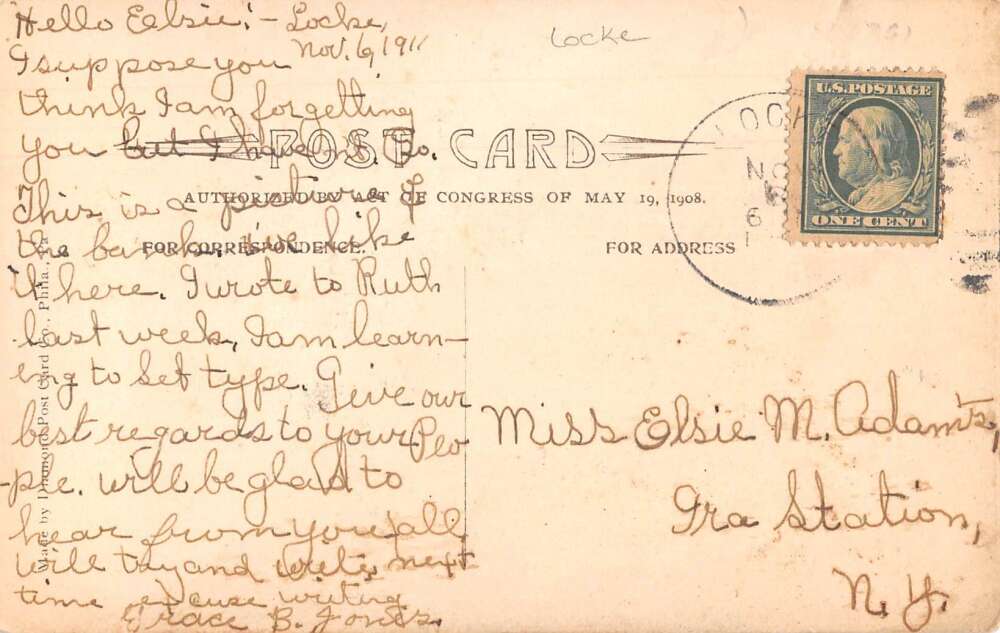 Hello Eelsie! - Locke,
Nov. 6, 1911
I suppose you
think I am forgetting
you but I have not
This is a picture of
the bank. We like
it here. I wrote to Ruth
last week, I am learn-
ing to set type. Give our
best regards to your Peo
-ple. will be glad to
hear from you all
will try and write next
time excuse writing
Grace B. Jones.
Locke
POST CARD
AUTHORIZED BY ACT OF CONGRESS OF MAY 19, 1908.
FOR CORRESPONDENCE.
FOR ADDRESS
Made by Diamond Post Card Co., Phila., Pa.
U.S. POSTAGE
ONE CENT
LOCK
NO
6
Miss Elsie M. Adams,
Ira Station,
N. Y.